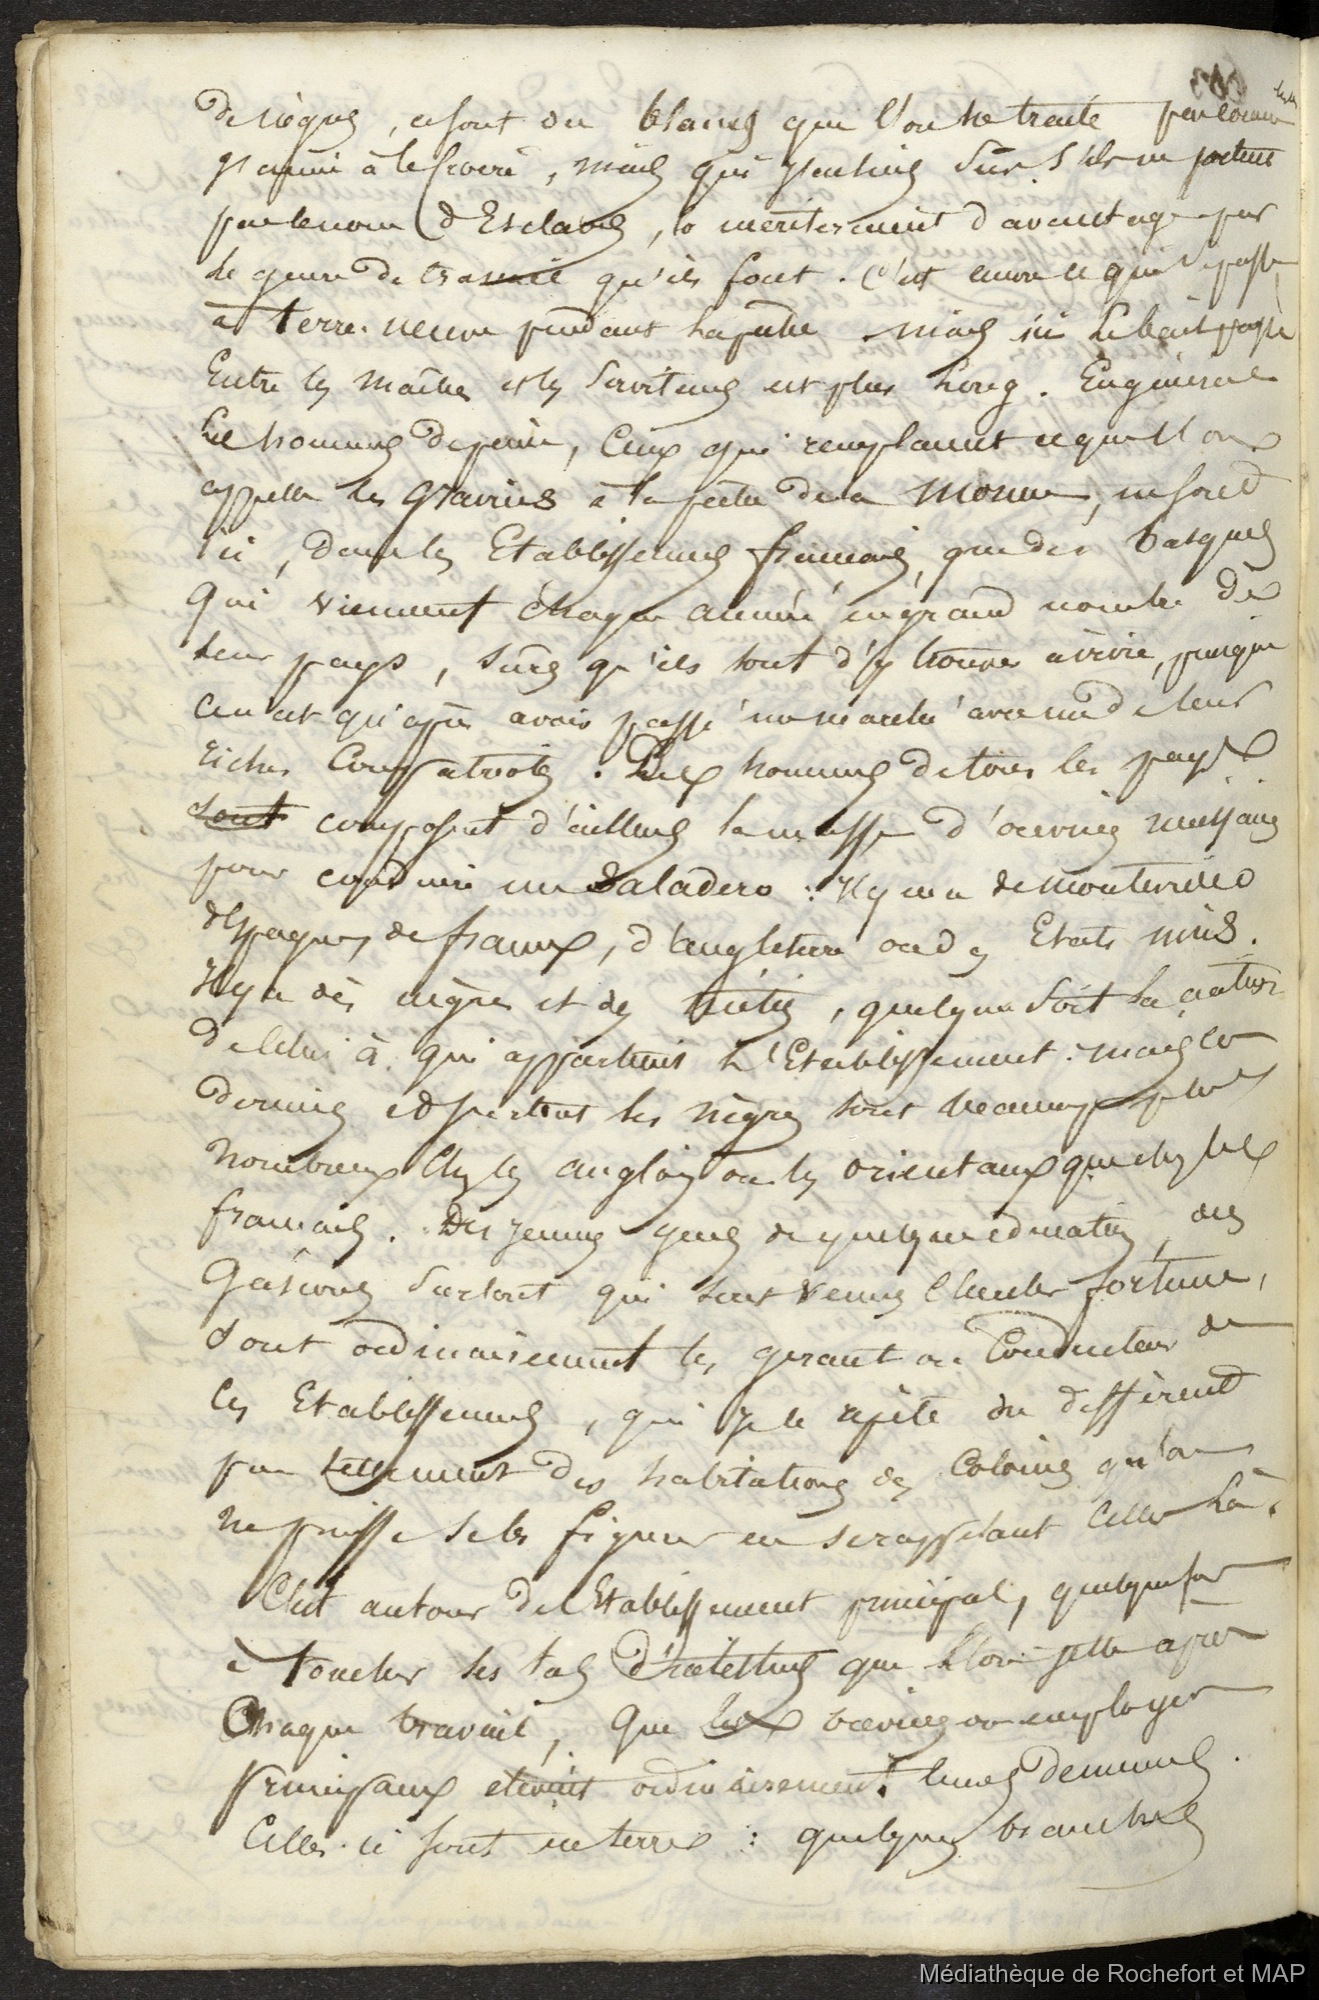 de nègres, ce sont des blancs que l'on ne traite pas comme
parmi à le croire, mais qui parlant sûr s'ils ne portent
pas le nom d'Esclaves, le meriteraient d'avantage par
le genre de travail qu'ils font. C'est encore ce qui se passe
à terre. neuve pendant la peche. mais ici le bail passé
Entre les maitres et les serviteurs est plus long. En général
les hommes de peine, Ceux qui remplacent ce que l'on
appelle les graviers à la peche de la morue, ne sont
ici, dans les Etablissemens francais, que des basques
qui viennent chaque année en grand nombre de
leur pays, surs qu'ils sont d'y trouver à vivre, puisque
ce n'est qu'après avoir passé un marché avec un de leurs
riches Compatriotes. Des hommes de tous les pays
sont composent d'ailleurs la masse d'ouvriers nécessaires
pour conduire un Saladero : il y en a de montevideo
d'Espagne, de france, d'angleterre ou des Etats unis.
Il y a des nègres et des métis, quelque soit la nation
de celui à qui appartient l'Etablissement. mais ces
derniers et surtout les nègres sont beaucoup plus
nombreux chez les anglois ou les orientaux que chez les
francais. Des jeunes gens de quelque education, des
Gascons surtout qui sont venus chercher fortune,
sont ordinairement les gerant ou Conducteurs de
ces Etablissemens, qui je le répète ne different
pas tellement des habitations des Colonies qu'on
ne puisse se les figurer en se rappelant celles là.
C'est autour de l'Etablissement principal, quelquefois
à toucher les tas d'intestins que l'on jette après
Chaque travail, que les ouvriers ou employés
principaux elevent ordinairement leurs demeures.
Celles-ci sont en terre : quelques branches
Médiathèque de Rochefort et MAP